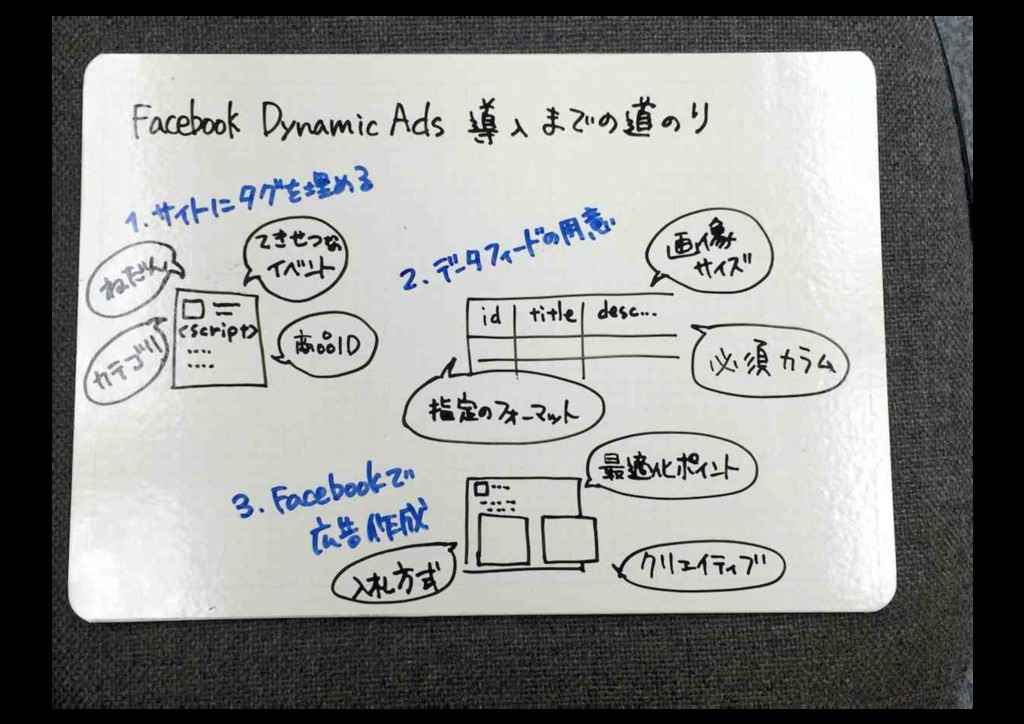 Facebook Dynamic Ads 導入までの道のり
1. サイトにタグを埋める
ねだん
てきせつな
イベント
<script>
カテゴリ
商品ID
2. データフィードの用意
画像
サイズ
id title desc...
必須カラム
指定のフォーマット
3. Facebookで
広告作成
最適化ポイント
入札方式
クリエイティブ